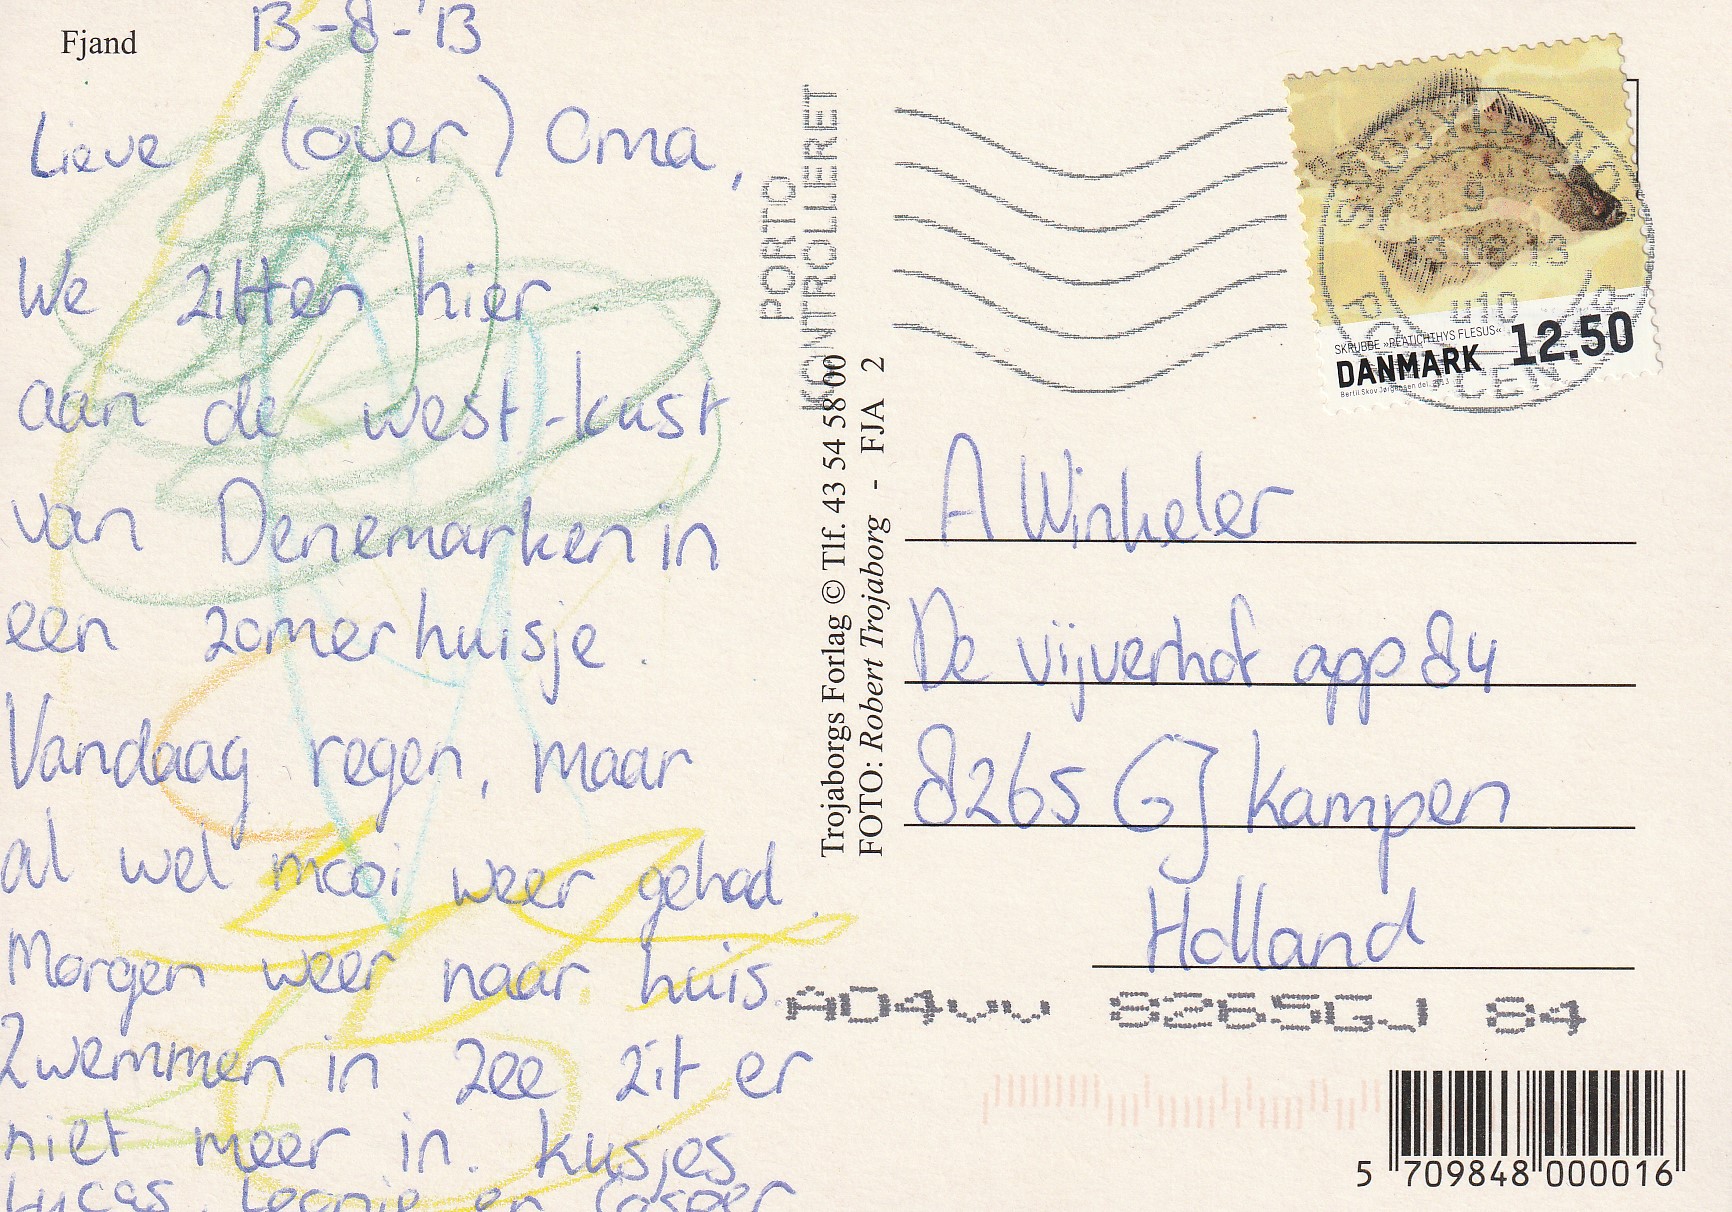 Fjand
13-8-'13
Lieve (over) Oma,
We zitten hier
aan de west-kust
van Denemarken in
een zomerhuisje.
Vandaag regen, maar
al wel mooi weer gehad.
Morgen weer naar huis.
Zwemmen in zee zit er
niet meer in. kusjes
Lucas, Leonie en Casper
PORTO
KONTROLLERET
Trojaborgs Forlag © Tlf. 43 54 58 00
FOTO: Robert Trojaborg - FJA 2
13.08.13
SKRUBBE »PLATICHTHYS FLESUS«
DANMARK 12.50
Bertil Skov Jørgensen del. 2013
A Winkeler
De vijverhof app 84
8265 GJ Kampen
Holland
8265GJ 84
5 709848 000016